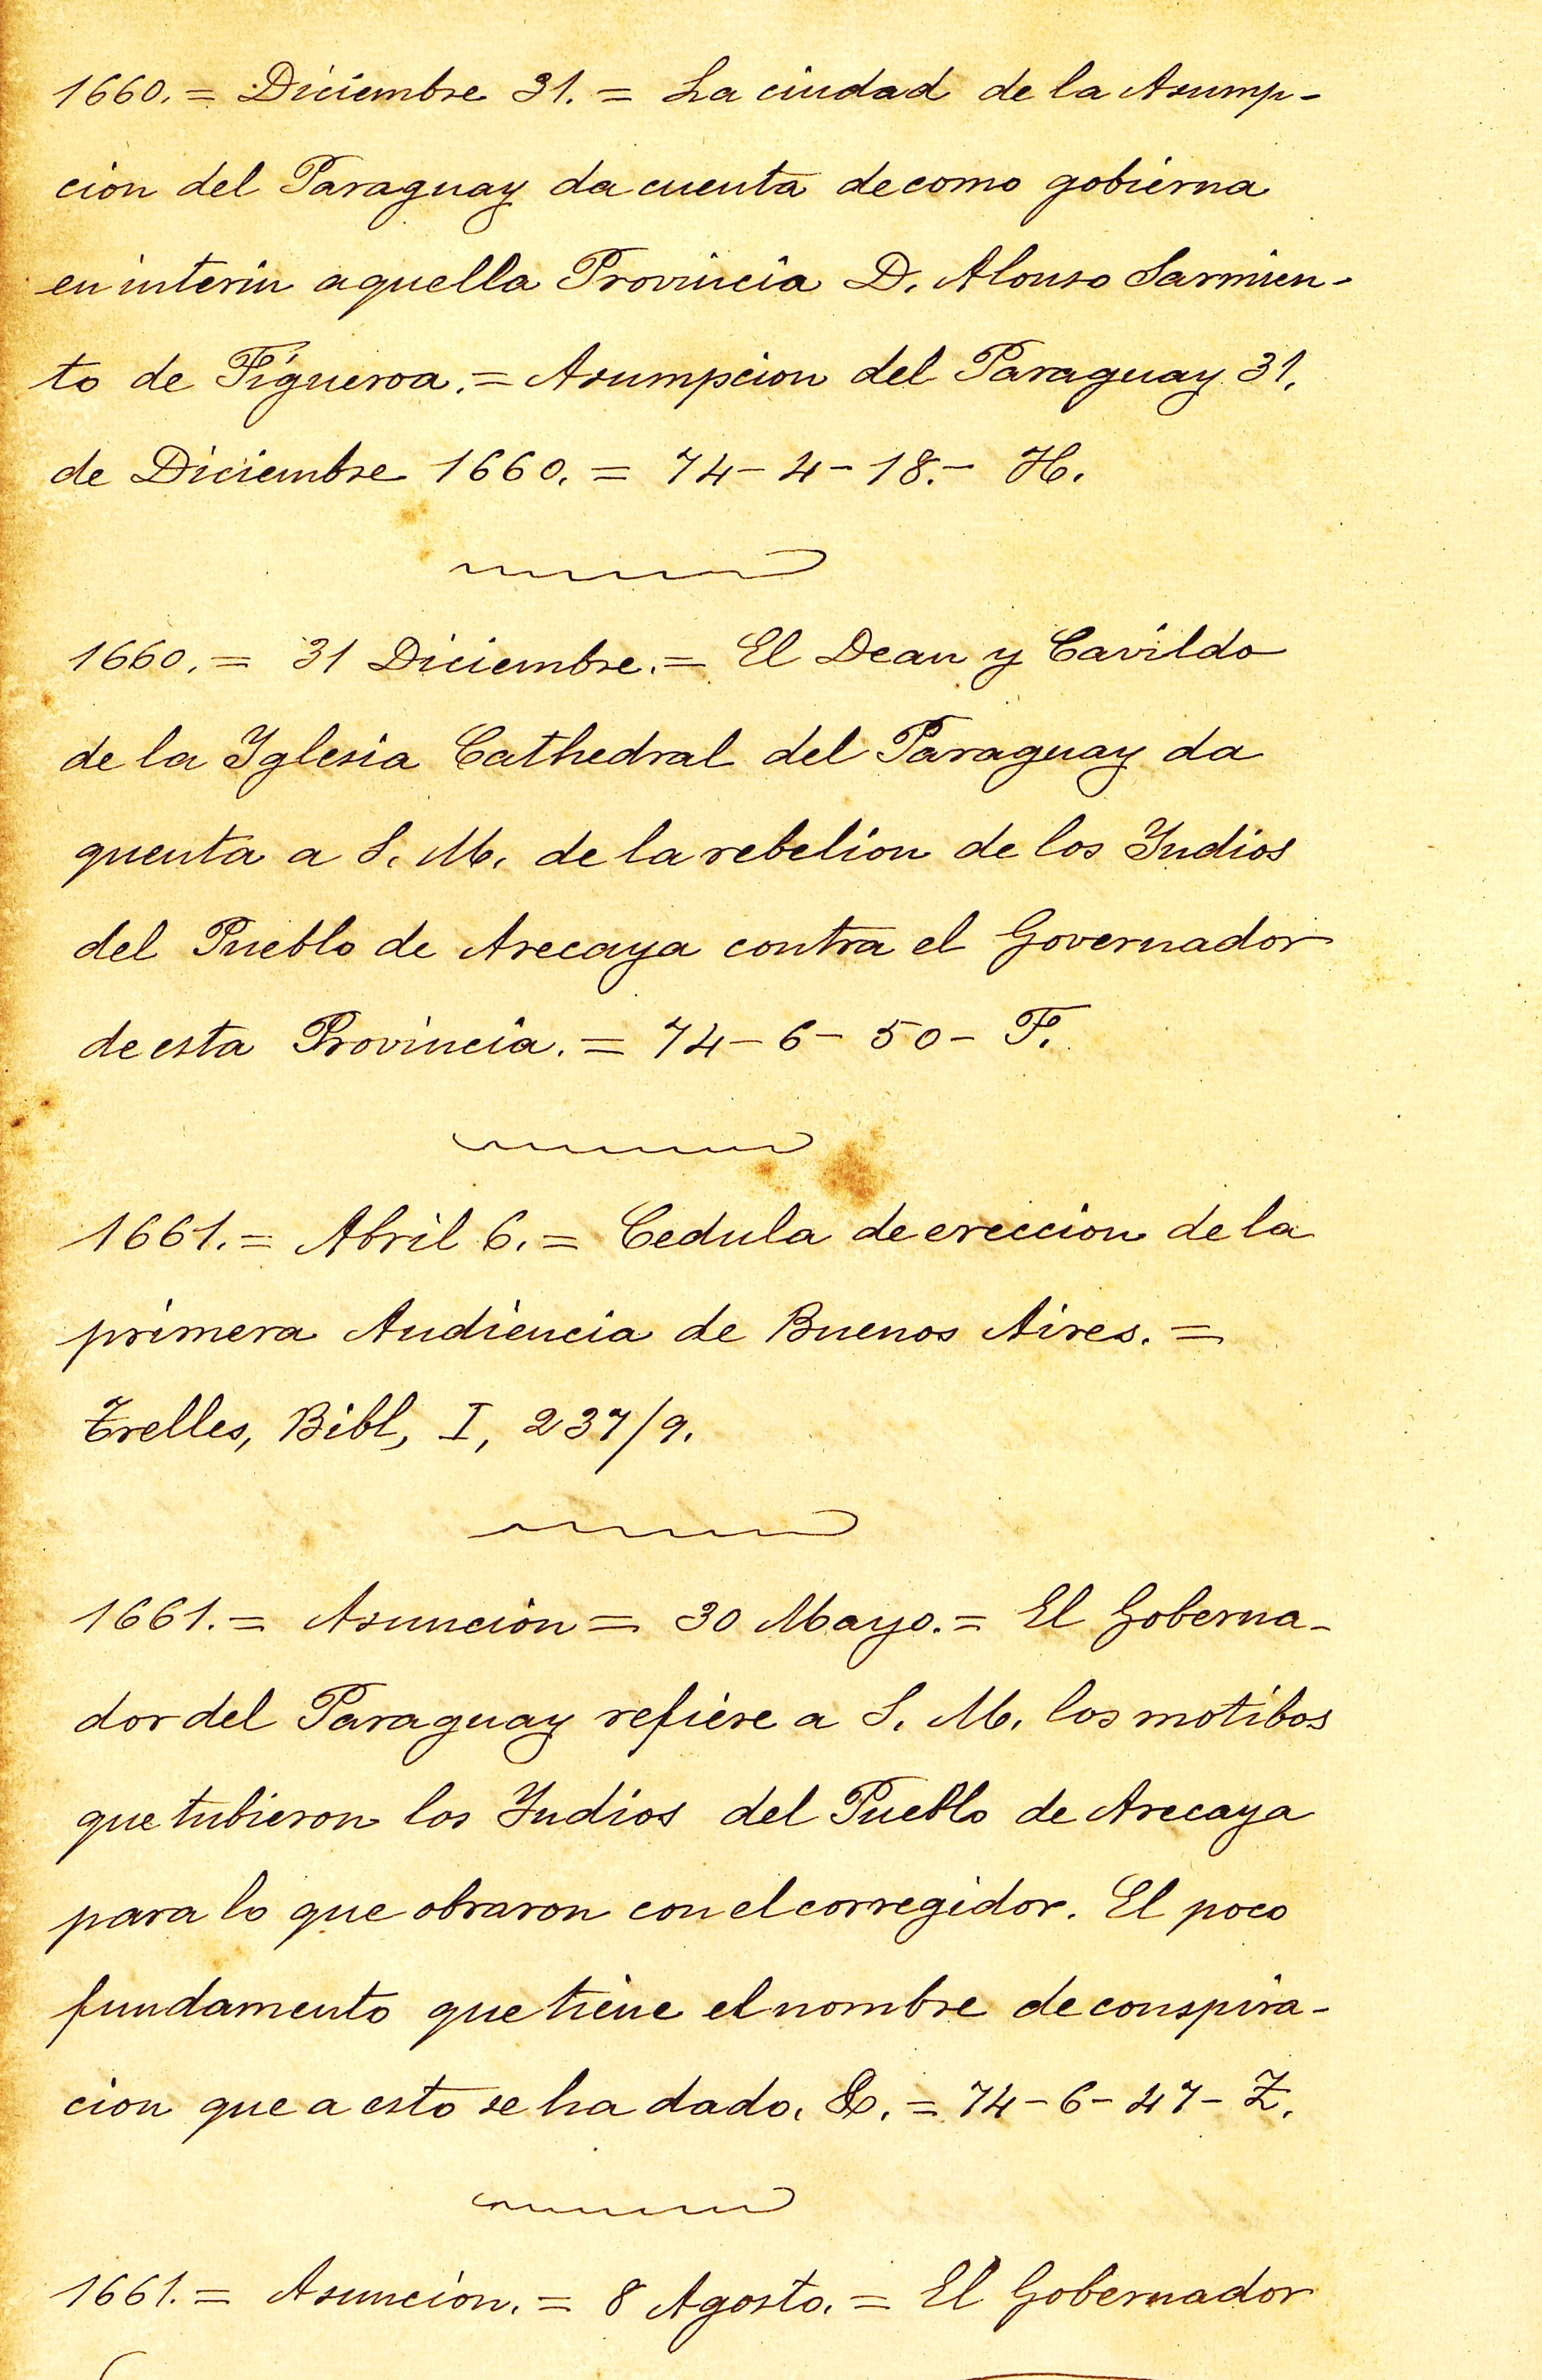 1660. = Diciembre 31. = La ciudad de la Asump-
cion del Paraguay da cuenta de como gobierna
en interin aquella Provincia D. Alonso Sarmien-
to de Figueroa. = Asumpcion del Paraguay 31.
de Diciembre 1660. = 74-4-18.- H.
1660. = 31 Diciembre. = El Dean y Cavildo
de la Iglesia Cathedral del Paraguay da
quenta a S. M. de la rebelion de los Indios
del Pueblo de Arecaya contra el Governador
de esta Provincia. = 74-6-50- F.
1661. = Abril 6. = Cedula de ereccion de la
primera Audiencia de Buenos Aires. =
Trelles, Bibl, I, 237/9.
1661. = Asuncion = 30 Mayo. = El Goberna-
dor del Paraguay refiere a S. M. los motibos
que tubieron los Indios del Pueblo de Arecaya
para lo que obraron con el corregidor. El poco
fundamento que tiene el nombre de conspira-
cion que a esto se ha dado. &. = 74-6-47- Z.
1661. = Asuncion. = 8 Agosto. = El Gobernador